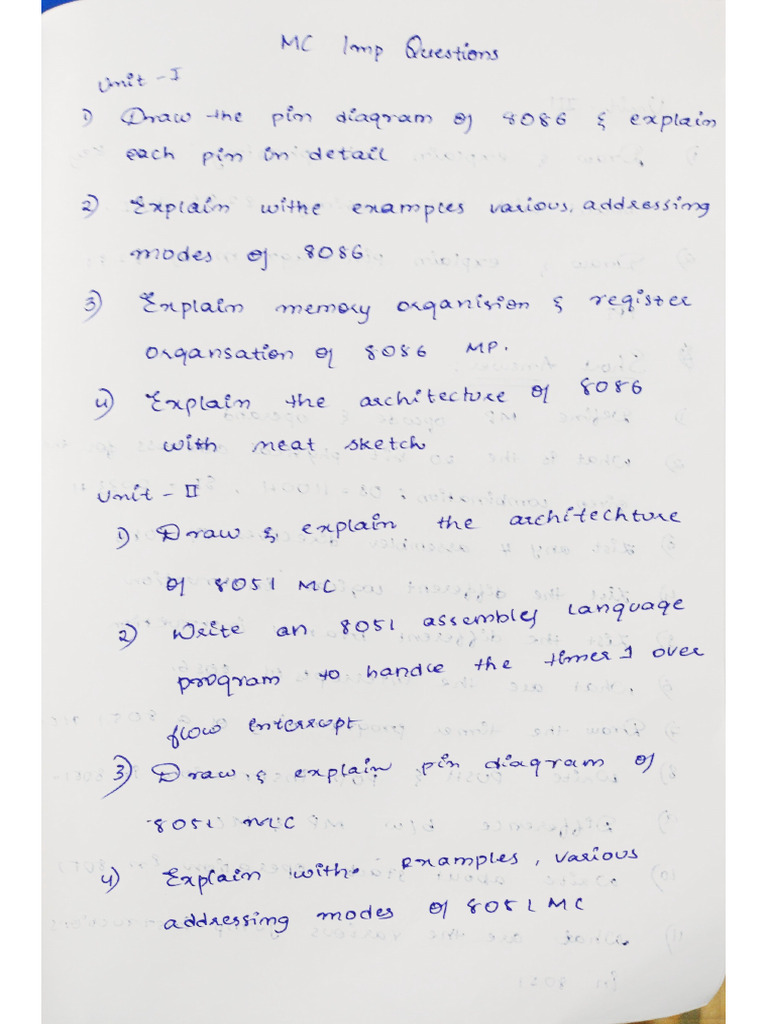 MC Imp Questions
Unit - I
1) Draw the pin diagram of 8086 & explain
each pin in detail
2) Explain withe examples various, addressing
modes of 8086
3) Explain memory organision & register
organsation of 8086 MP.
4) Explain the architecture of 8086
with neat sketch
Unit - II
1) Draw & explain the architechture
of 8051 MC
2) Write an 8051 assembly language
program to handle the timer 1 over
flow interrupt
3) Draw & explain pin diagram of
8051 MC
4) Explain with examples, various
addressing modes of 8051 MC